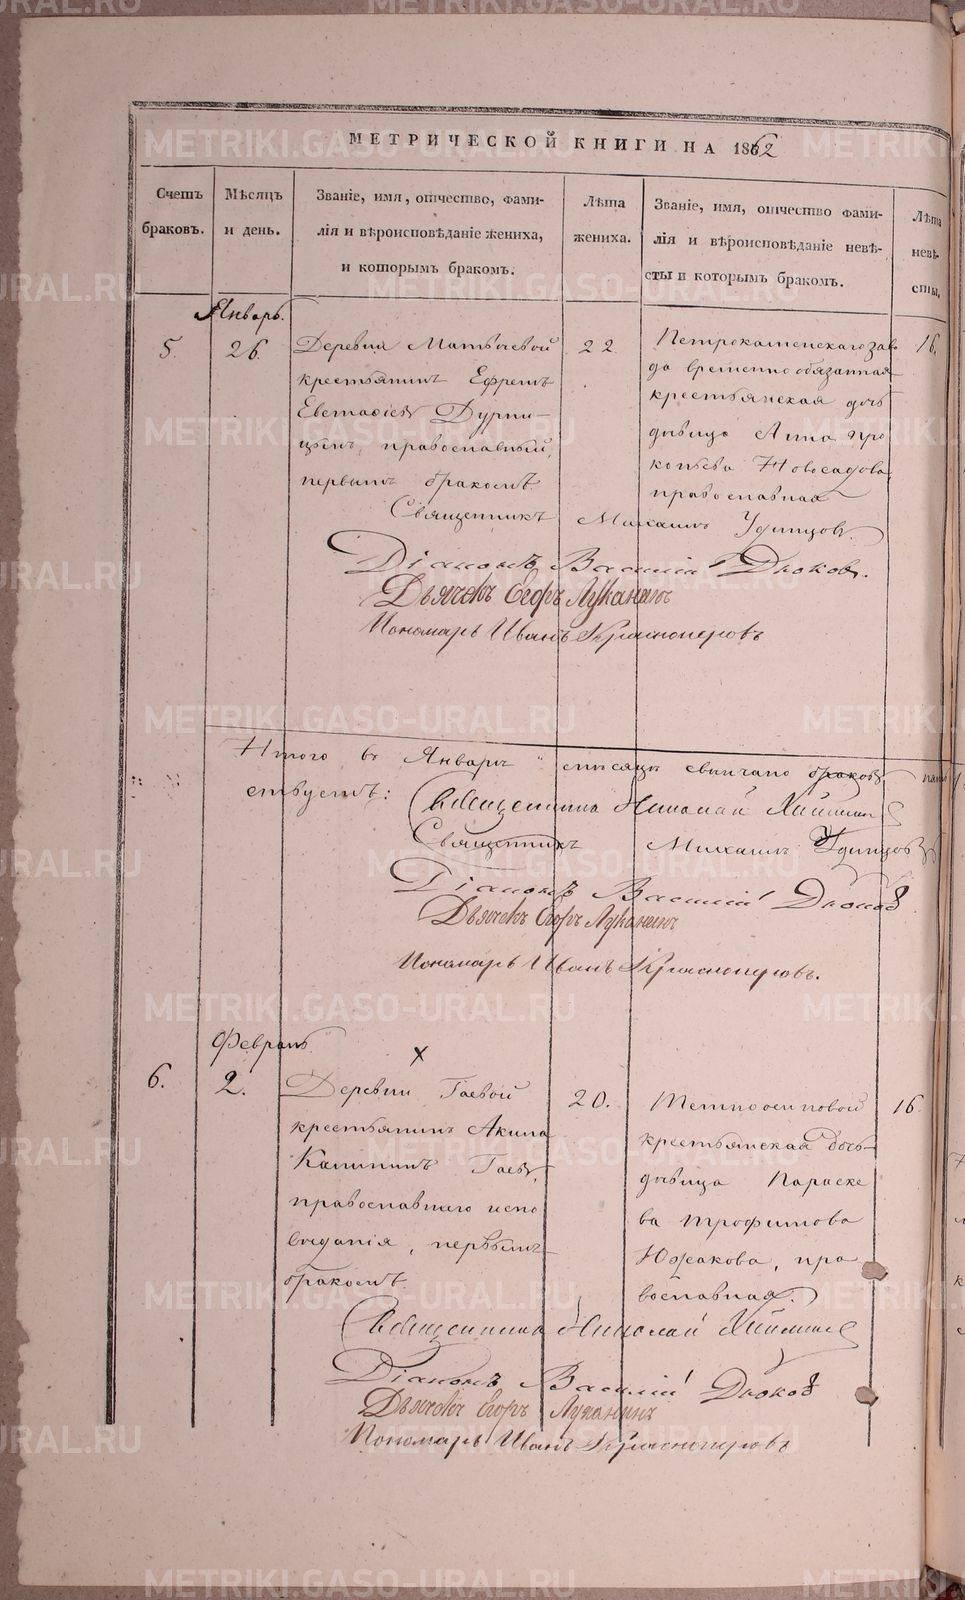 МЕТРИЧЕСКОЙ КНИГИ НА 1862
Счетъ браковъ.
Мѣсяцъ и день.
Званіе, имя, отчество, фами-
лія и вѣроисповѣданіе жениха,
и которымъ бракомъ.
Лѣта жениха.
Званіе, имя, отчество фами-
лія и вѣроисповѣданіе невѣ-
сты и которымъ бракомъ.
Лѣта невѣ-
сты,
Январь.
5.
26.
Деревни Матвѣевой
крестьянинъ Ефремъ
Евстафіевъ Дурни-
цынъ, православный,
первымъ бракомъ.
22
Петрокаменскаго заво
да временно обязанная
крестьянская дочь
дѣвица Анна Про
копьева Новосадова,
православная
16.
Священникъ Михаилъ Удинцовъ.
Діаконъ Василій Дьоковъ.
Дьячекъ Егоръ Луканинъ
Пономарь Иванъ Красноперовъ
Итого въ Январѣ мѣсяцѣ свѣнчано браковъ
ствуетъ:
Священникъ Николай
Священникъ Михаилъ Удинцовъ
Діаконъ Василій Дьоковъ
Дьячекъ Егоръ Луканинъ
Пономарь Иванъ Красноперовъ.
Февраль
х
6.
2.
Деревни Гаевой
крестьянинъ Акила
Калининъ Гаевъ,
православнаго испо
вѣданія, первымъ
бракомъ
20.
Темноосиновой
крестьянская дочь
дѣвица Параске
ва Трофимова
Южакова, пра
вославная.
16
Священникъ Николай
Діаконъ Василій Дьоковъ
Дьячекъ Егоръ Луканинъ
Пономарь Иванъ Красноперовъ
METRIKI.GASO-URAL.RU